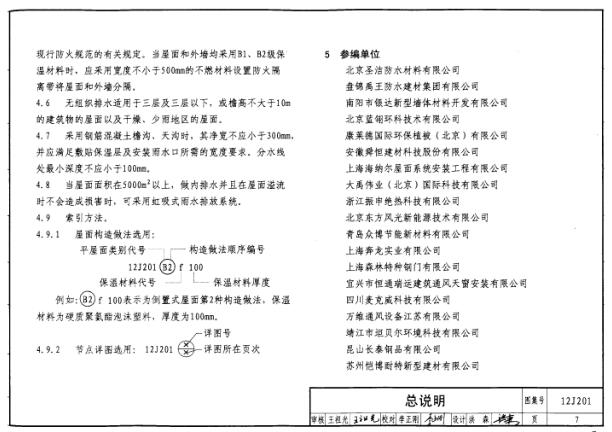 现行防火规范的有关规定。当屋面和外墙均采用B1、B2级保
温材料时，应采用宽度不小于500mm的不燃材料设置防火隔
离带将屋面和外墙分隔。
4.6 无组织排水适用于三层及三层以下，或檐高不大于10m
的建筑物的屋面以及干燥、少雨地区的屋面。
4.7 采用钢筋混凝土檐沟、天沟时，其净宽不应小于300mm，
并应满足敷贴保温层及安装雨水口所需的宽度要求。分水线
处最小深度不应小于100mm。
4.8 当屋面面积在5000m²以上，做内排水并且在屋面溢流
时不会造成损害时，可采用虹吸式雨水排放系统。
4.9 索引方法。
4.9.1 屋面构造做法选用：
平屋面类别代号 构造做法顺序编号
12J201 B2 f 100
保温材料代号 保温材料厚度
例如：B2 f 100表示为倒置式屋面第2种构造做法，保温
材料为硬质聚氨酯泡沫塑料，厚度为100mm。
详图号
4.9.2 节点详图选用： 12J201 × × 详图所在页次
5 参编单位
北京圣洁防水材料有限公司
盘锦禹王防水建材集团有限公司
南阳市银达新型墙体材料开发有限公司
北京蓝翎环科技术有限公司
康莱德国际环保植被（北京）有限公司
安徽舜恒建材科技股份有限公司
上海海纳尔屋面系统安装工程有限公司
大禹伟业（北京）国际科技有限公司
浙江振申绝热科技有限公司
北京东方风光新能源技术有限公司
青岛众博节能新材料有限公司
上海奔龙实业有限公司
上海森林特种钢门有限公司
宜兴市恒通瑞运建筑通风天窗安装有限公司
四川麦克威科技有限公司
万维通风设备江苏有限公司
靖江市垣贝尔环境科技有限公司
昆山长泰铜品有限公司
苏州恺博耐特新型建材有限公司
总说明 图集号 12J201
审核 王祖光 校对 李正刚 设计 洪森 页 7